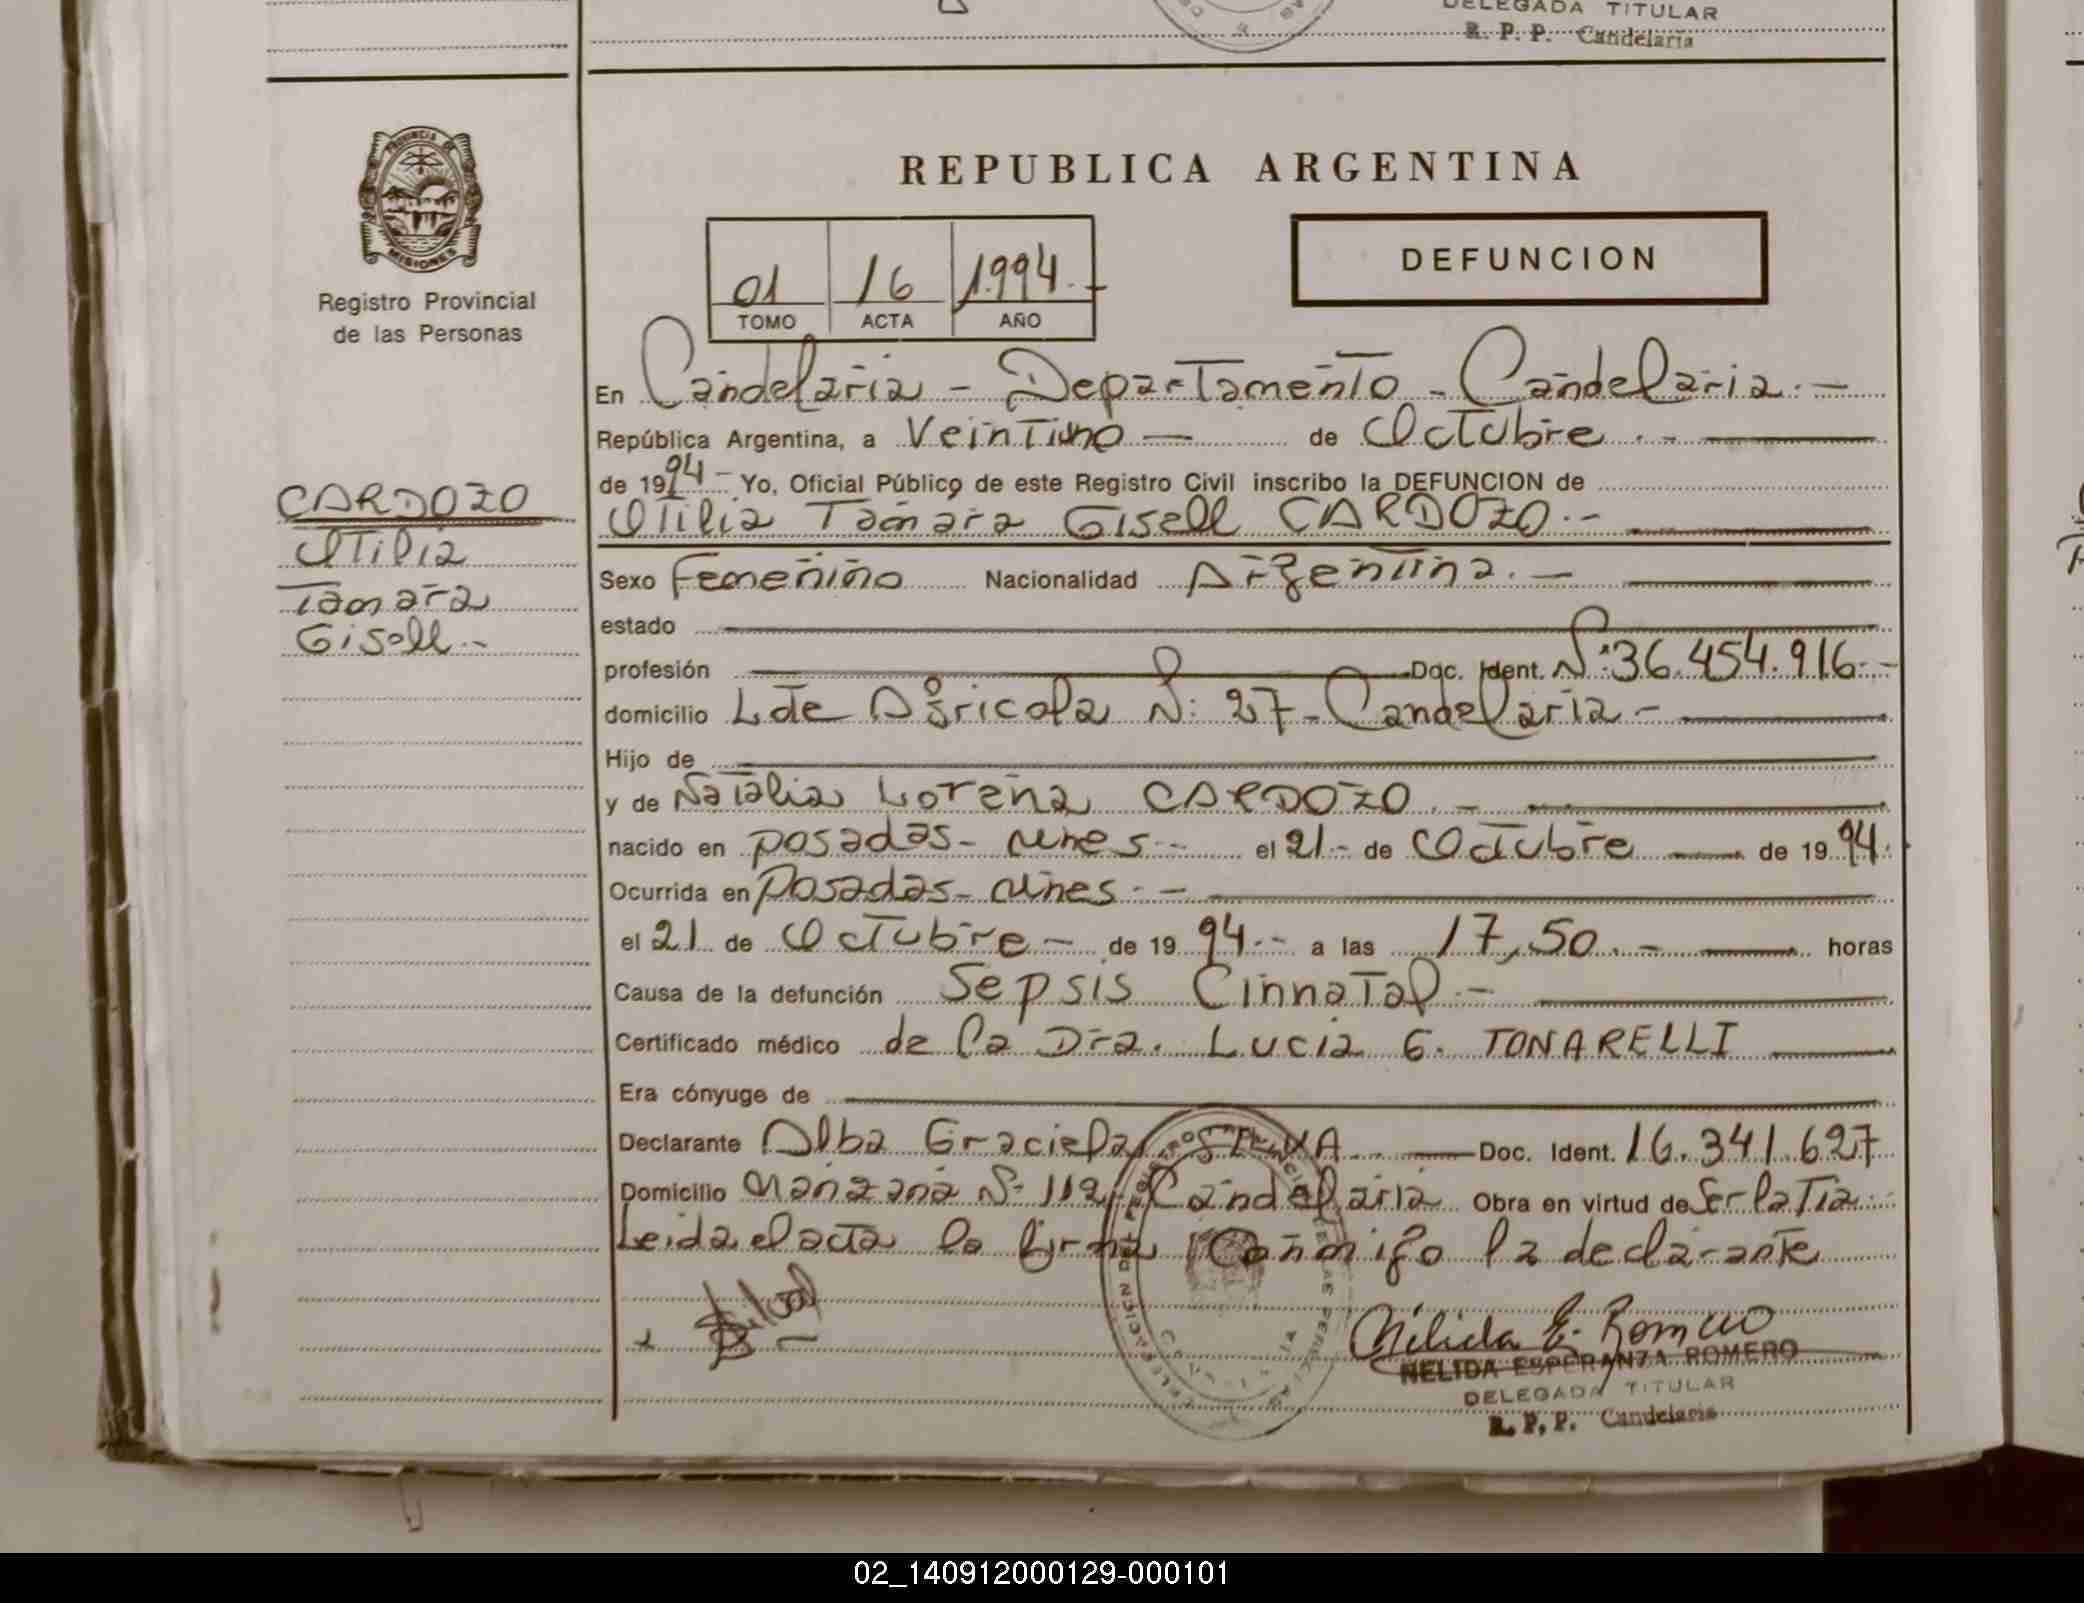 DELEGADA TITULAR
R. P. P. Candelaria
PROVINCIA DE
MISIONES
Registro Provincial
de las Personas
REPUBLICA ARGENTINA
DEFUNCION
01 16 1994.-
TOMO ACTA AÑO
En Candelaria - Departamento - Candelaria.-
República Argentina, a Veintiuno — de Octubre.-
de 1994.- Yo, Oficial Público de este Registro Civil inscribo la DEFUNCION de
Otilia Tamara Gisell CARDOZO.-
CARDOZO
Otilia
Tamara
Gisell.-
Sexo Femenino Nacionalidad Argentina.-
estado
profesión Doc. Ident. Nº:36.454.916.-
domicilio Lde Agricola Nº: 27-Candelaria-
Hijo de
y de Natalia Lorena CARDOZO.-
nacido en posadas- Mnes.- el 21.- de Octubre — de 1994.
Ocurrida en Posadas- Mnes.-
el 21 de Octubre - de 1994.- a las 17,50.- horas
Causa de la defunción Sepsis Cinnatal.-
Certificado médico de la Dra. Lucia G. TONARELLI
Era cónyuge de
Declarante Alba Graciela SILVA. — Doc. Ident. 16.341.627
Domicilio Manzana Nº 112, Candelaria Obra en virtud de Ser la Tia.
Leida el acta la firma Conmigo la declarante
Nélida E. Romero
NELIDA ESPERANZA ROMERO
DELEGADA TITULAR
R. P. P. Candelaria
02_140912000129-000101